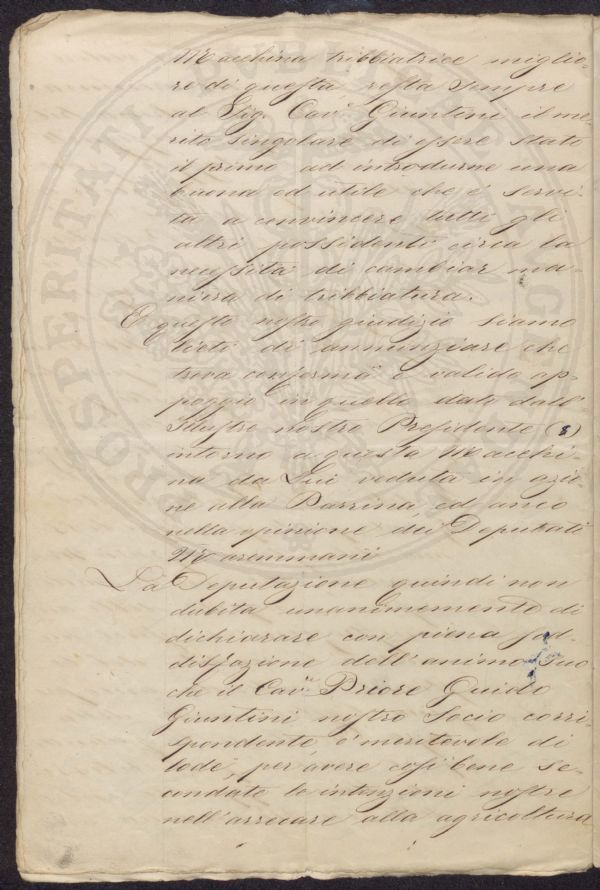 Macchina tribbiatrice miglio-
re di questa resta sempre
al Sig. Cav. Giuntini il me-
rito singolare di essere stato
il primo ad introdurne una
buona ed utile che è servi-
ta a convincere tutti gli
altri possidenti circa la
necessità di cambiar ma-
niera di tribbiatura.
E questo nostro giudizio siamo
lieti di annunziare che
trova conferma e valido ap-
poggio in quello dato dall'
Illustre nostro Presidente (8)
intorno a questa Macchi-
na da Lui veduta in azio-
ne alla Parrina, ed anco
nella opinione dei Deputati
Maremmani
La Deputazione quindi non
dubita unanimemente di
dichiarare con piena sod-
disfazione dell'animo suo
che il Cav. Priore Guido
Giuntini nostro Socio corri-
spondente è meritevole di
lode, per avere così bene se-
condato le intenzioni nostre
nell'arrecare alla agricoltura
PROSPERITATI PUBLICAE AUGENDAE